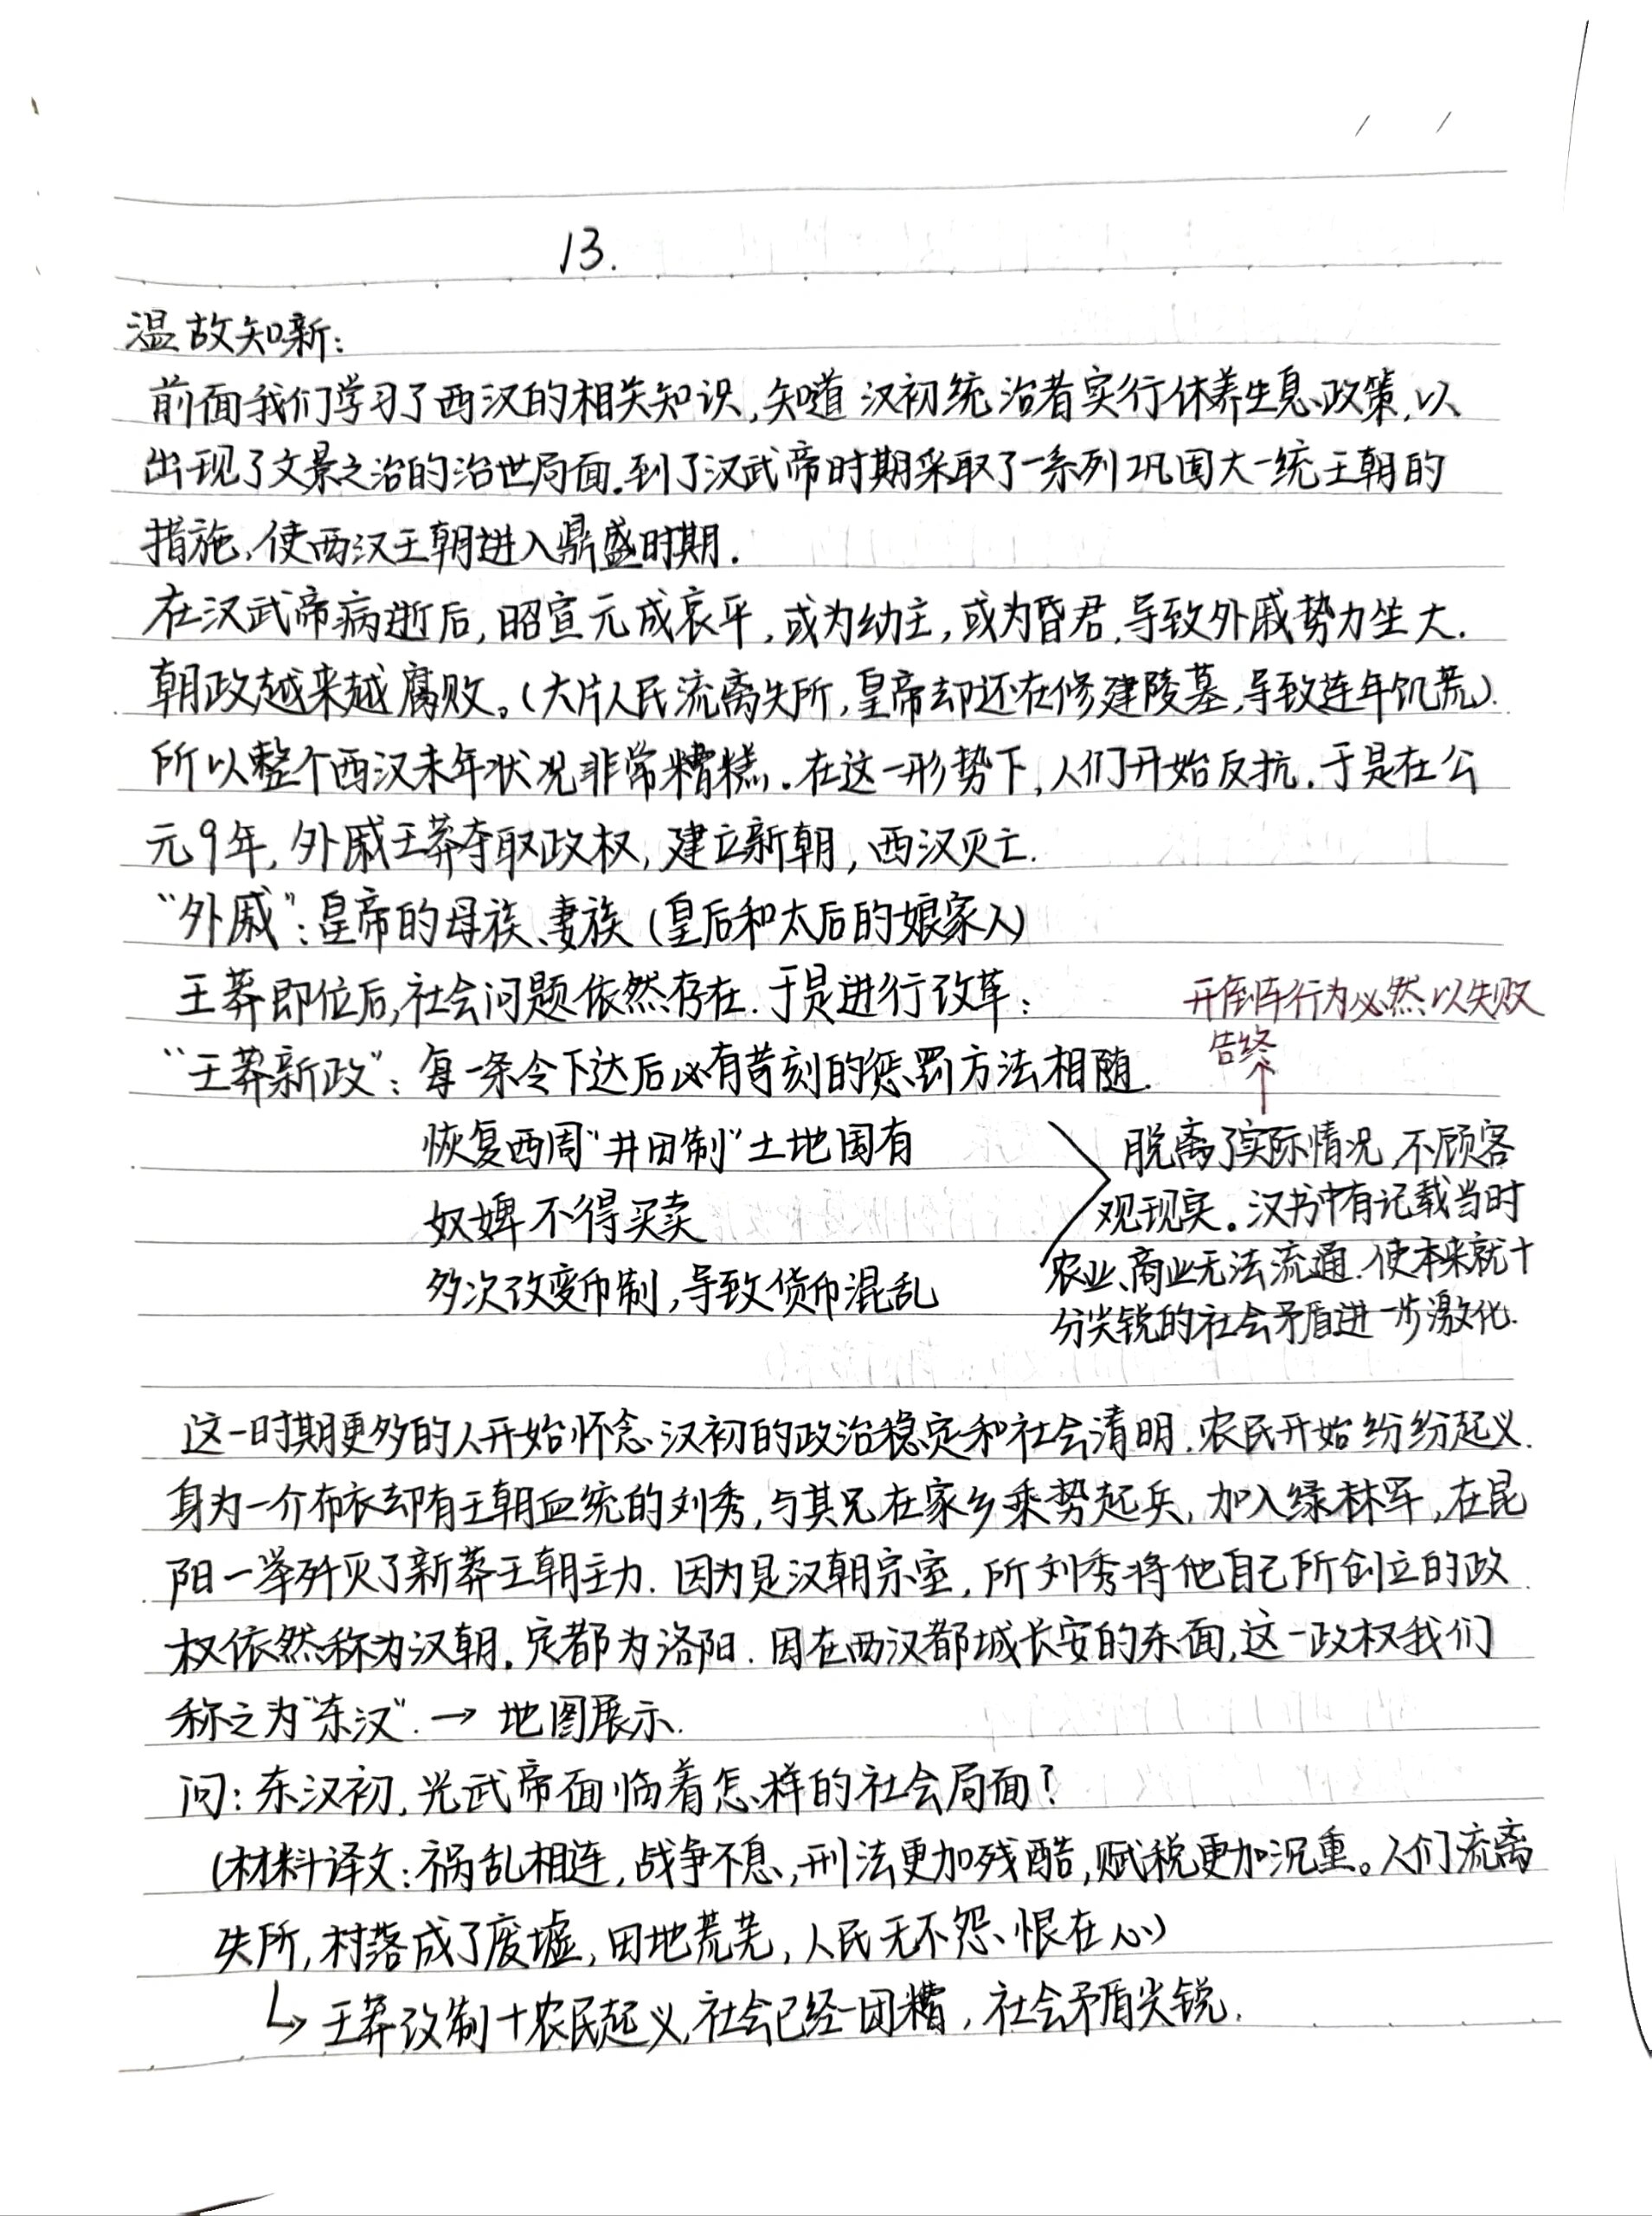 13.
温故知新:
前面我们学习了西汉的相关知识,知道汉初统治者实行休养生息政策,以
出现了文景之治的治世局面.到了汉武帝时期采取了一系列巩固大一统王朝的
措施,使西汉王朝进入鼎盛时期.
在汉武帝病逝后,昭宣元成哀平,或为幼主,或为昏君,导致外戚势力坐大.
朝政越来越腐败。(大片人民流离失所,皇帝却还在修建陵墓,导致连年饥荒).
所以整个西汉末年状况非常糟糕.在这一形势下,人们开始反抗.于是在公
元9年,外戚王莽夺取政权,建立新朝,西汉灭亡.
“外戚”:皇帝的母族、妻族(皇后和太后的娘家人)
王莽即位后,社会问题依然存在.于是进行改革:
开倒车行为必然以失败
告终
“王莽新政”:每一条令下达后必有苛刻的惩罚方法相随.
恢复西周“井田制”土地国有
奴婢不得买卖
多次改变币制,导致货币混乱
脱离了实际情况,不顾客
观现实。汉书中有记载当时
农业、商业无法流通.使本来就十
分尖锐的社会矛盾进一步激化.
这一时期更多的人开始怀念汉初的政治稳定和社会清明.农民开始纷纷起义.
身为一介布衣却有王朝血统的刘秀,与其兄在家乡乘势起兵,加入绿林军,在昆
阳一举歼灭了新莽王朝主力.因为是汉朝宗室,所刘秀将他自己所创立的政
权依然称为汉朝。定都为洛阳.因在西汉都城长安的东面,这一政权我们
称之为“东汉”.→地图展示.
问:东汉初,光武帝面临着怎样的社会局面?
(材料译文:祸乱相连,战争不息,刑法更加残酷,赋税更加沉重。人们流离
失所,村落成了废墟,田地荒芜,人民无不怨恨在心)
↳王莽改制+农民起义,社会已经一团糟,社会矛盾尖锐.